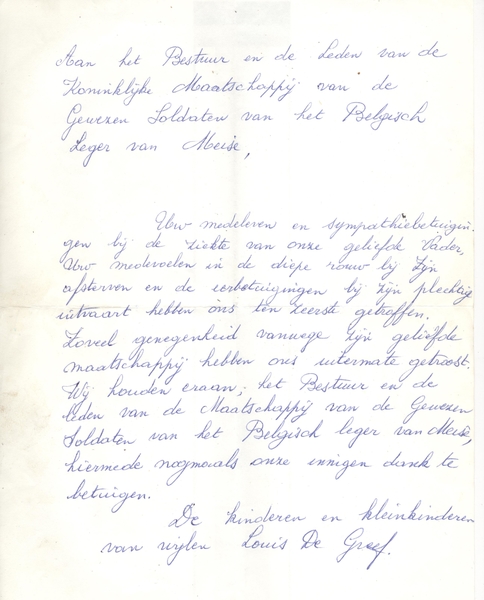 Aan het Bestuur en de Leden van de
Koninklijke Maatschappij van de
Gewezen Soldaten van het Belgisch
Leger van Meise,
Uw medeleven en sympathiebetuigin-
gen bij de ziekte van onze geliefde Vader,
Uw medevoelen in de diepe rouw bij zijn
afsterven en de eerbetuigingen bij zijn plechtig
uitvaart hebben ons ten zeerste getroffen.
Zoveel genegenheid vanwege zijn geliefde
maatschappij hebben ons uitermate getroost.
Wij houden eraan, het Bestuur en de
leden van de Maatschappij van de Gewezen
Soldaten van het Belgisch leger van Meise,
hiermede nogmaals onze innigen dank te
betuigen.
De kinderen en kleinkinderen
van wijlen Louis De Greef.